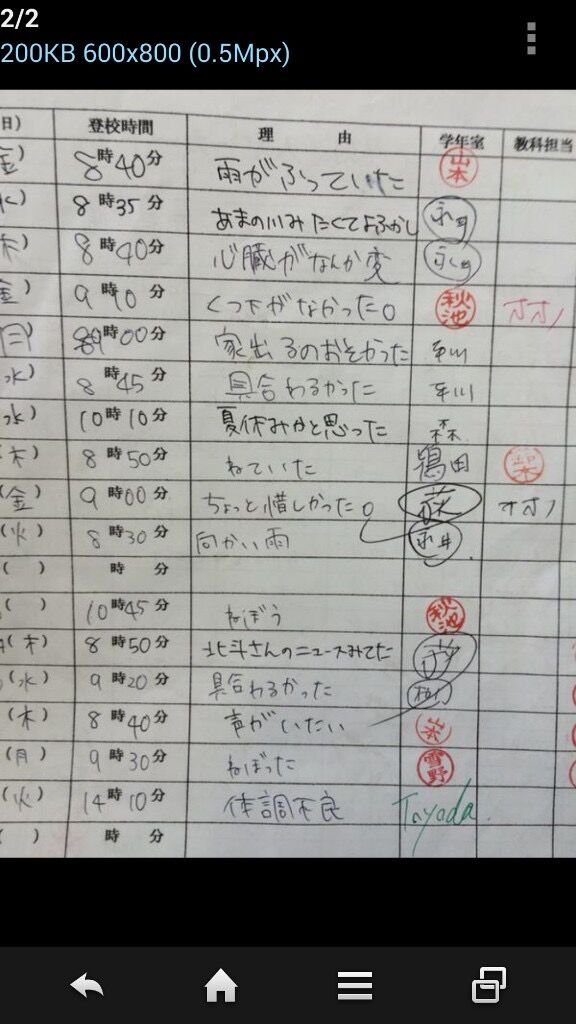 2/2
200KB 600x800 (0.5Mpx)
日) 登校時間 理 由 学年室 教科担当
金) 8時40分 雨がふっていた 山本
水) 8時35分 あまの川みたくてよふかし 永井
木) 8時40分 心臓がなんか変 永井
金) 9時10分 くつ下がなかった。 秋池 オオノ
月) 9時00分 家出るのおそかった 平川
水) 8時45分 具合わるかった 平川
水) 10時10分 夏休みかと思った 森
(木) 8時50分 ねていた 鶴田
(金) 9時00分 ちょっと惜しかった。 オオノ
(火) 8時30分 向かい雨 永井
( ) 時 分
( ) 10時45分 ねぼう 秋池
(木) 8時50分 北斗さんのニュースみてた
(水) 9時20分 具合わるかった
(木) 8時40分 声がいたい 山本
(月) 9時30分 ねぼった 雪野
(火) 14時10分 体調不良 Toyoda
( ) 時 分